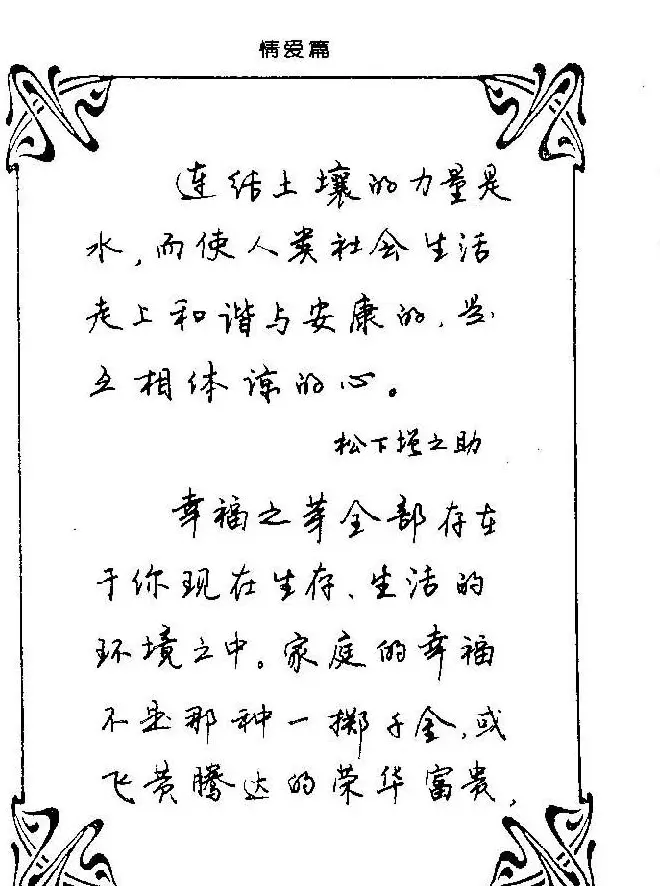 情爱篇
连结土壤的力量是
水，而使人类社会生活
走上和谐与安康的，是
互相体谅的心。
松下增之助
幸福之芽全部存在
于你现在生存、生活的
环境之中。家庭的幸福
不是那种一掷千金，或
飞黄腾达的荣华富贵，